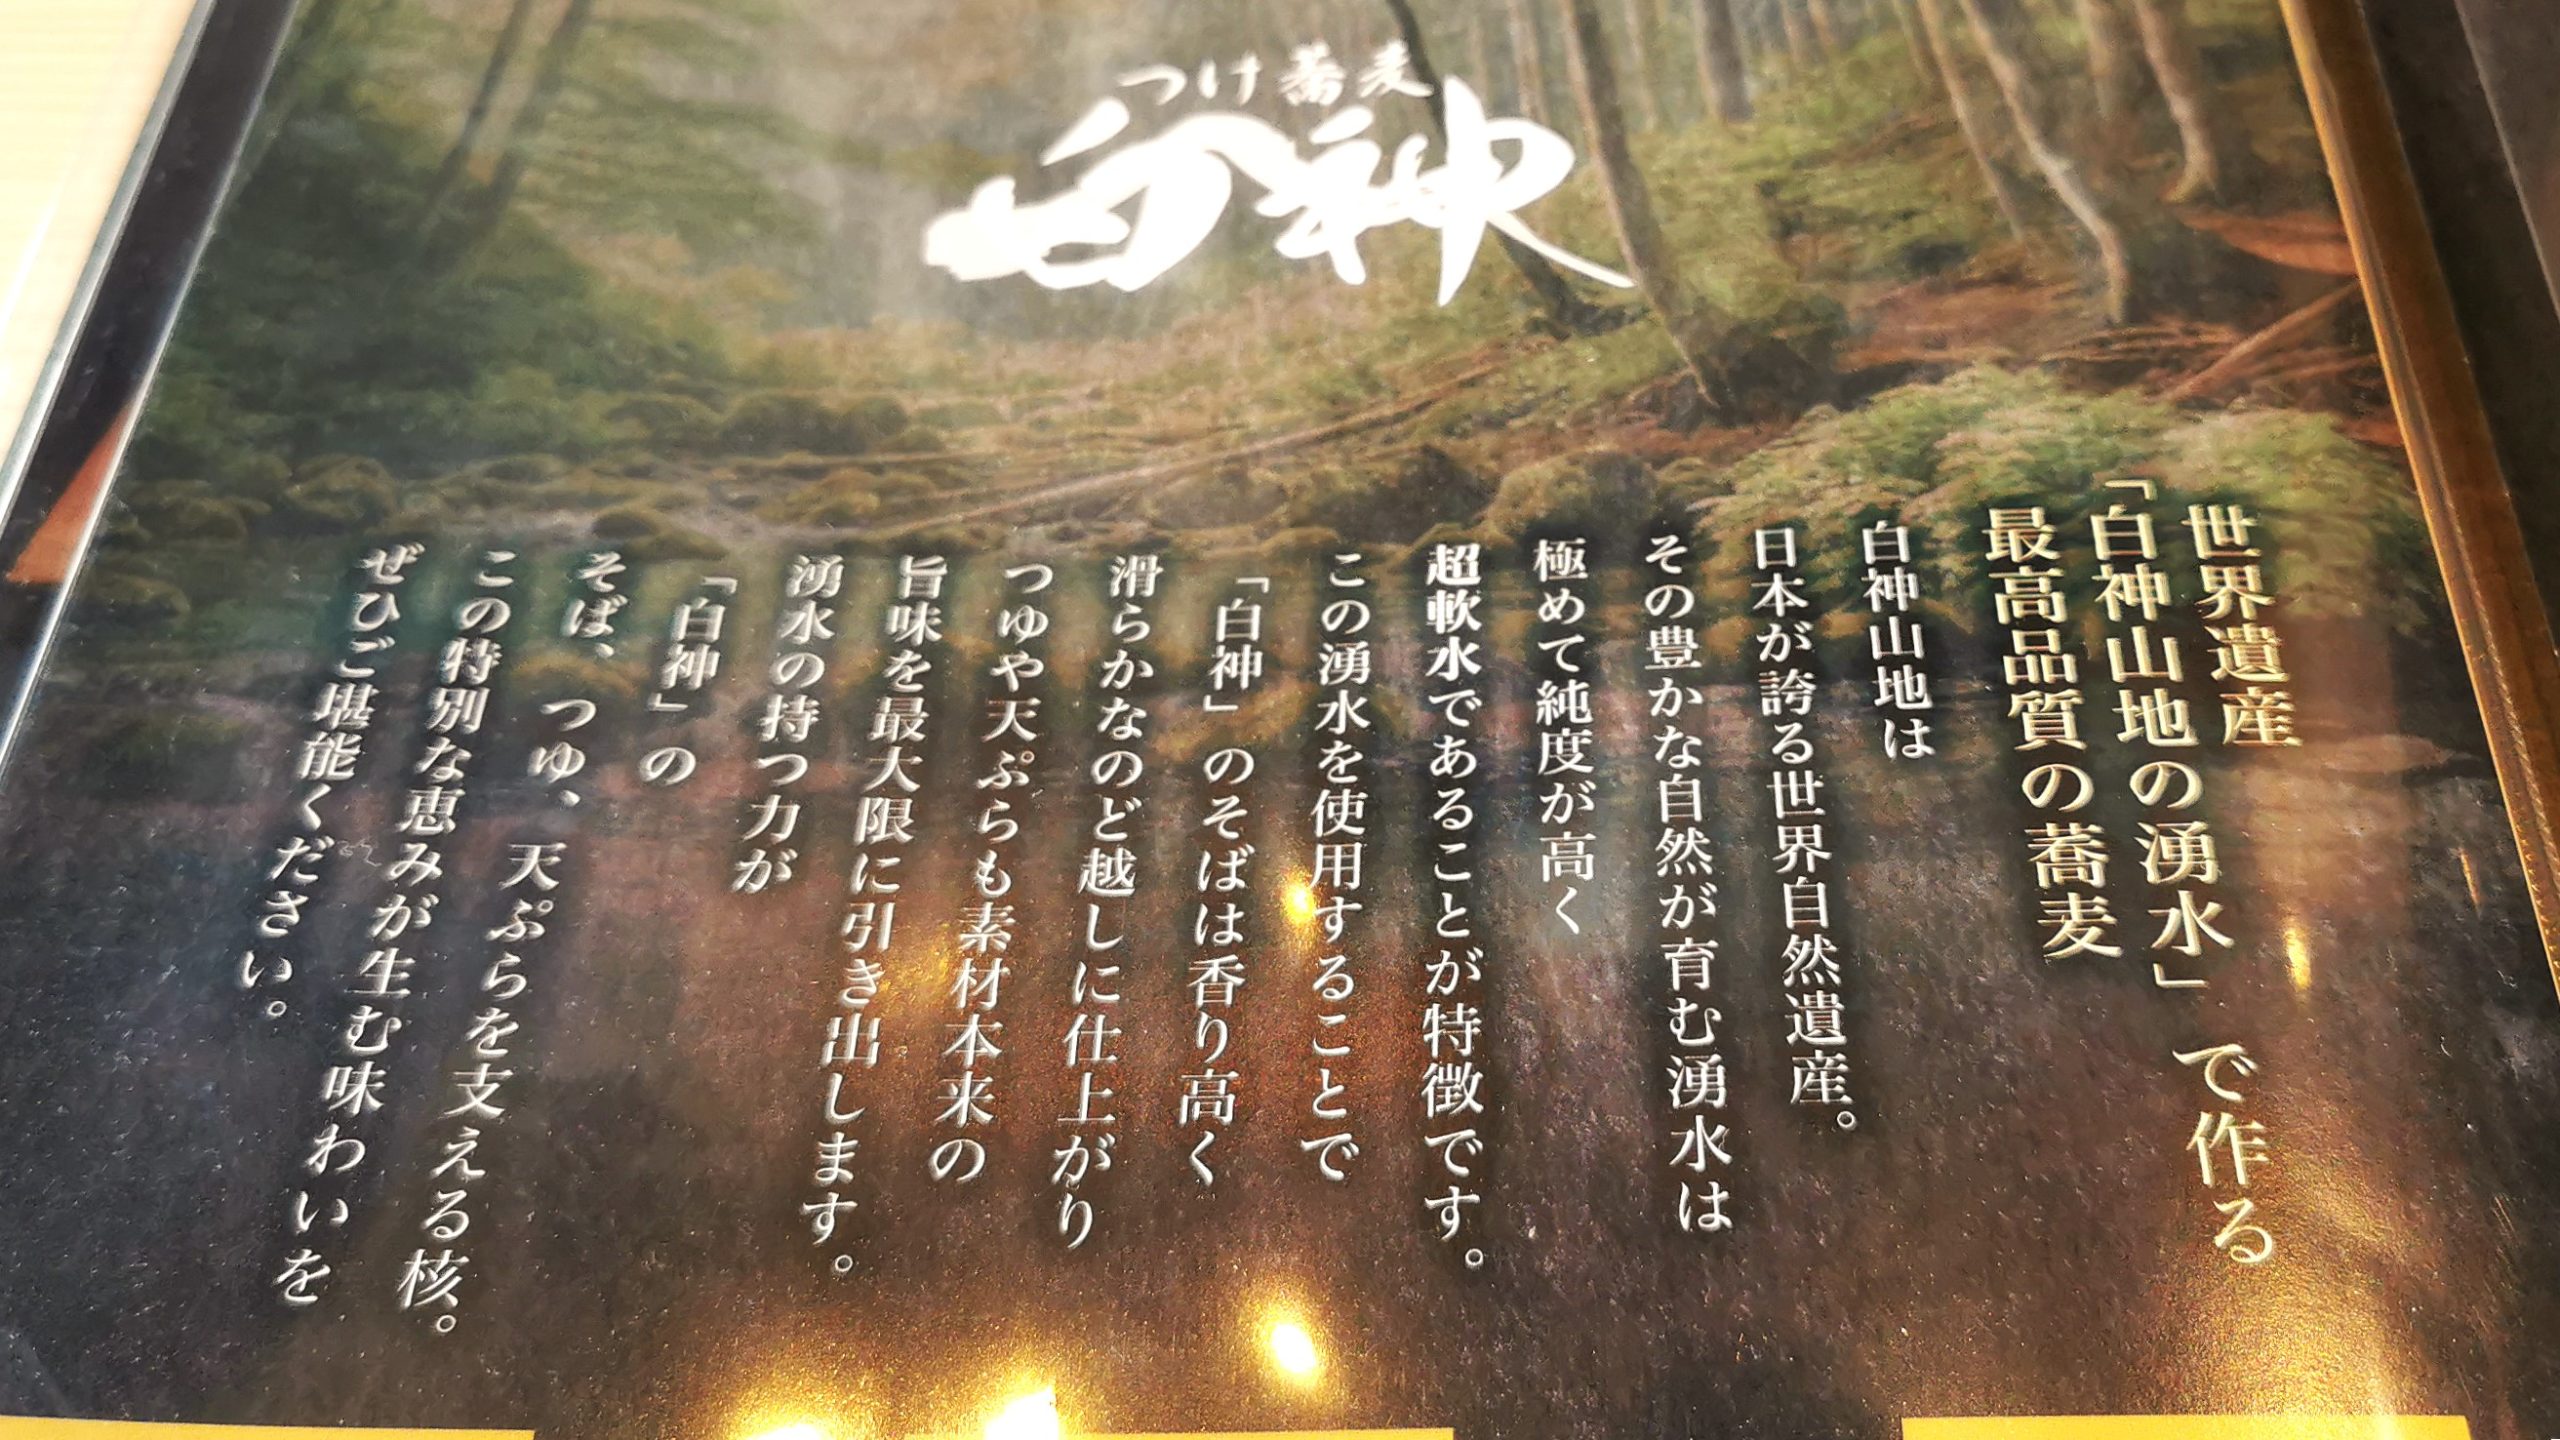 つけ蕎麦
白神
世界遺産
「白神山地の湧水」で作る
最高品質の蕎麦
白神山地は
日本が誇る世界自然遺産。
その豊かな自然が育む湧水は
極めて純度が高く
超軟水であることが特徴です。
この湧水を使用することで
「白神」のそばは香り高く
滑らかなのど越しに仕上がり
つゆや天ぷらも素材本来の
旨味を最大限に引き出します。
湧水の持つ力が
「白神」の
そば、つゆ、天ぷらを支える核。
この特別な恵みが生む味わいを
ぜひご堪能ください。